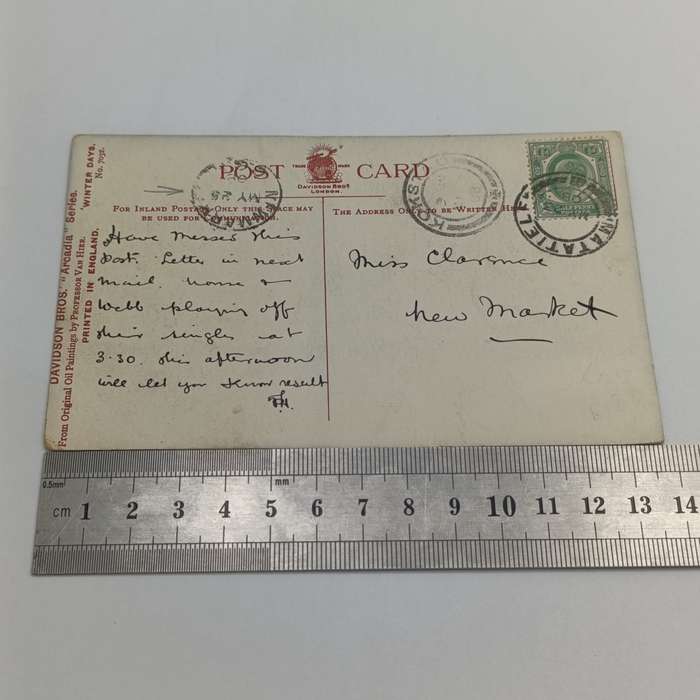 POST CARD
TRADE MARK
DAVIDSON BROS.
LONDON.
FOR INLAND POSTAGE ONLY THIS SPACE MAY
BE USED FOR COMMUNICATION.
THE ADDRESS ONLY TO BE WRITTEN HERE
DAVIDSON BROS. "Arcadia" Series.
From Original Oil Paintings by PROFESSOR VAN HIER.
PRINTED IN ENGLAND.
"WINTER DAYS."
No. 7032.
MY 25
MATATIELE
HALF PENNY
Have missed this
Post. Letter in next
mail. &
Webb playing off
their singles at
3.30. this afternoon
will let you know result
Miss Clarence
New Market
0.5mm
mm
cm 1 2 3 4 5 6 7 8 9 10 11 12 13 14